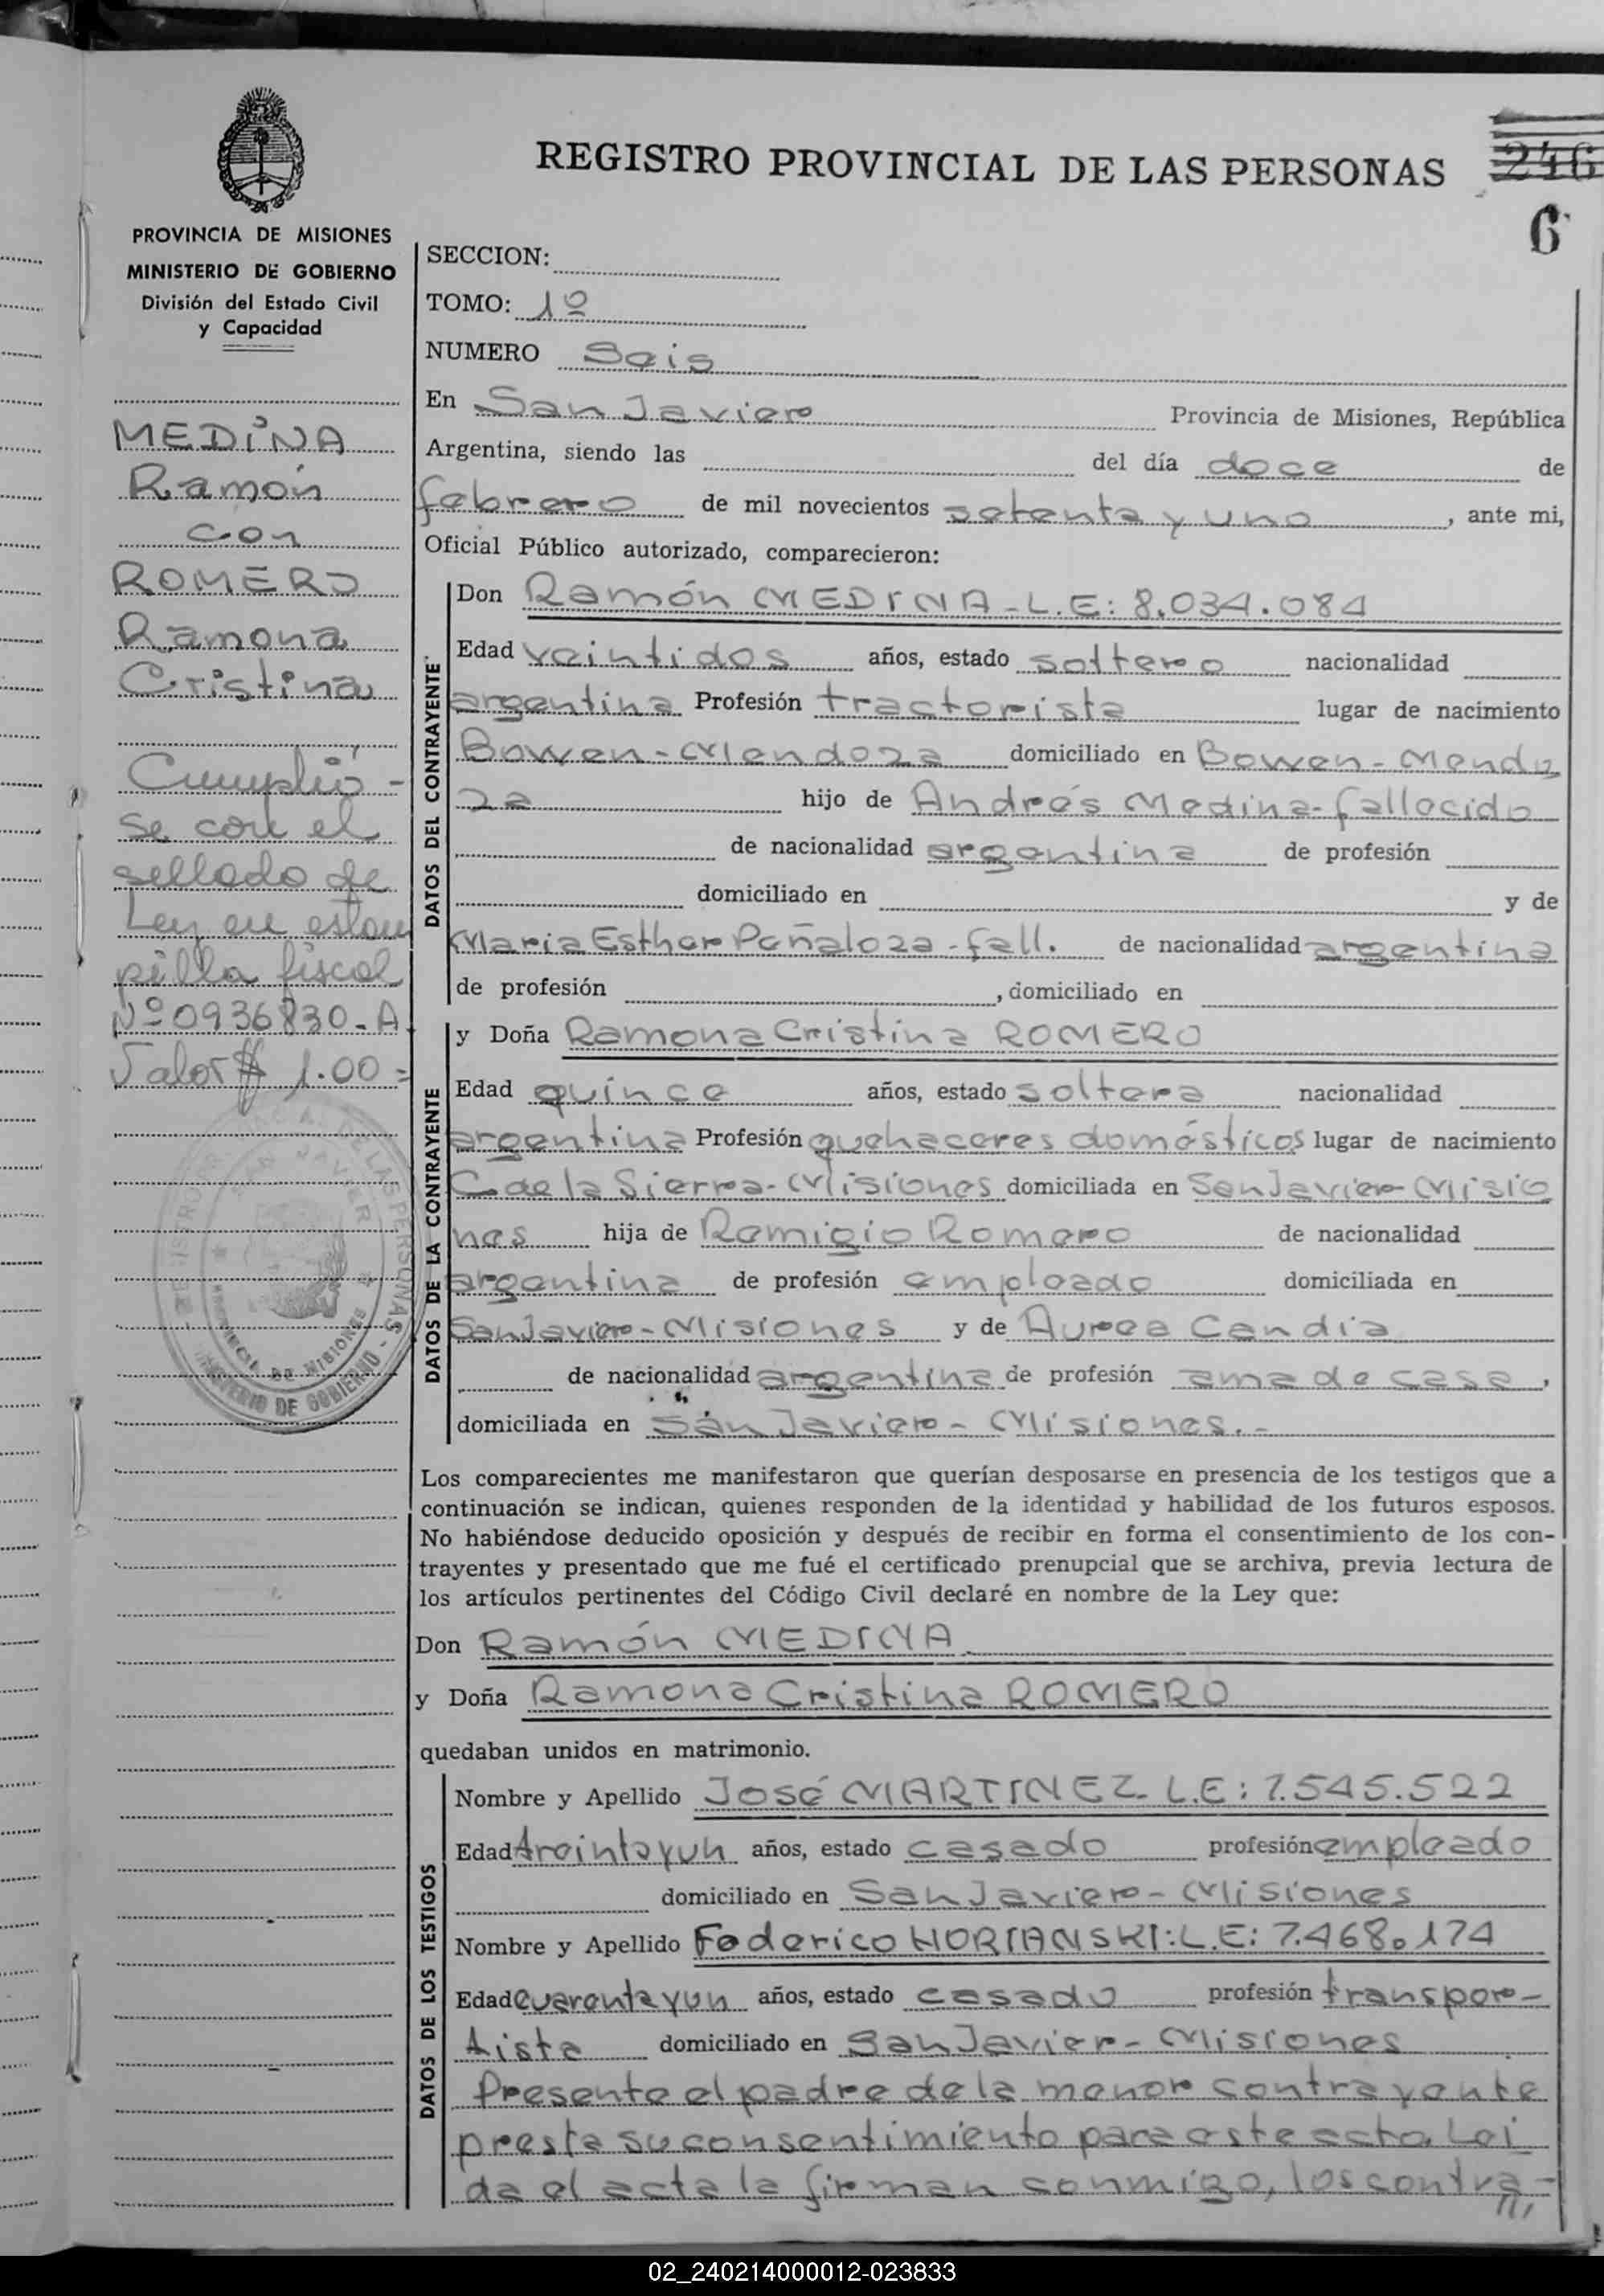 REGISTRO PROVINCIAL DE LAS PERSONAS
246
6
PROVINCIA DE MISIONES
MINISTERIO DE GOBIERNO
División del Estado Civil
y Capacidad
MEDINA
Ramón
con
ROMERO
Ramona
Cristina
Cumplió-
se con el
sellado de
Ley en estam
pilla fiscal
Nº 0936830-A
Valor $ 1.00=
SECCION:
TOMO: 1º
NUMERO Seis
En San Javier Provincia de Misiones, República
Argentina, siendo las del día doce de
febrero de mil novecientos setenta y uno, ante mi,
Oficial Público autorizado, comparecieron:
DATOS DEL CONTRAYENTE
Don Ramón MEDINA-L.E: 8.034.084
Edad veintidos años, estado soltero nacionalidad
argentina Profesión tractorista lugar de nacimiento
Bowen-Mendoza domiciliado en Bowen-Mendo
za hijo de Andrés Medina-fallecido
de nacionalidad argentina de profesión
domiciliado en y de
Maria Esther Peñaloza-fall. de nacionalidad argentina
de profesión , domiciliado en
DATOS DE LA CONTRAYENTE
y Doña Ramona Cristina ROMERO
Edad quince años, estado soltera nacionalidad
argentina Profesión quehaceres domésticos lugar de nacimiento
C. de la Sierra-Misiones domiciliada en San Javier-Misio
nes hija de Remigio Romero de nacionalidad
argentina de profesión empleado domiciliada en
San Javier-Misiones y de Aurea Candia
de nacionalidad argentina de profesión ama de casa,
domiciliada en San Javier-Misiones.-
Los comparecientes me manifestaron que querían desposarse en presencia de los testigos que a
continuación se indican, quienes responden de la identidad y habilidad de los futuros esposos.
No habiéndose deducido oposición y después de recibir en forma el consentimiento de los con-
trayentes y presentado que me fué el certificado prenupcial que se archiva, previa lectura de
los artículos pertinentes del Código Civil declaré en nombre de la Ley que:
Don Ramón MEDINA
y Doña Ramona Cristina ROMERO
quedaban unidos en matrimonio.
DATOS DE LOS TESTIGOS
Nombre y Apellido José MARTINEZ-L.E: 7.545.522
Edad treintayun años, estado casado profesión empleado
domiciliado en San Javier-Misiones
Nombre y Apellido Federico HORIANSKI:L.E: 7.468.174
Edad cuarentayun años, estado casado profesión transpor-
tista domiciliado en San Javier-Misiones
Presente el padre de la menor contrayente
presta su consentimiento para este acto. Lei
da el acta la firman conmigo, los contra-
///
REGISTRO PROVINCIAL DE LAS PERSONAS
SAN JAVIER
PROVINCIA DE MISIONES
MINISTERIO DE GOBIERNO
02_240214000012-023833